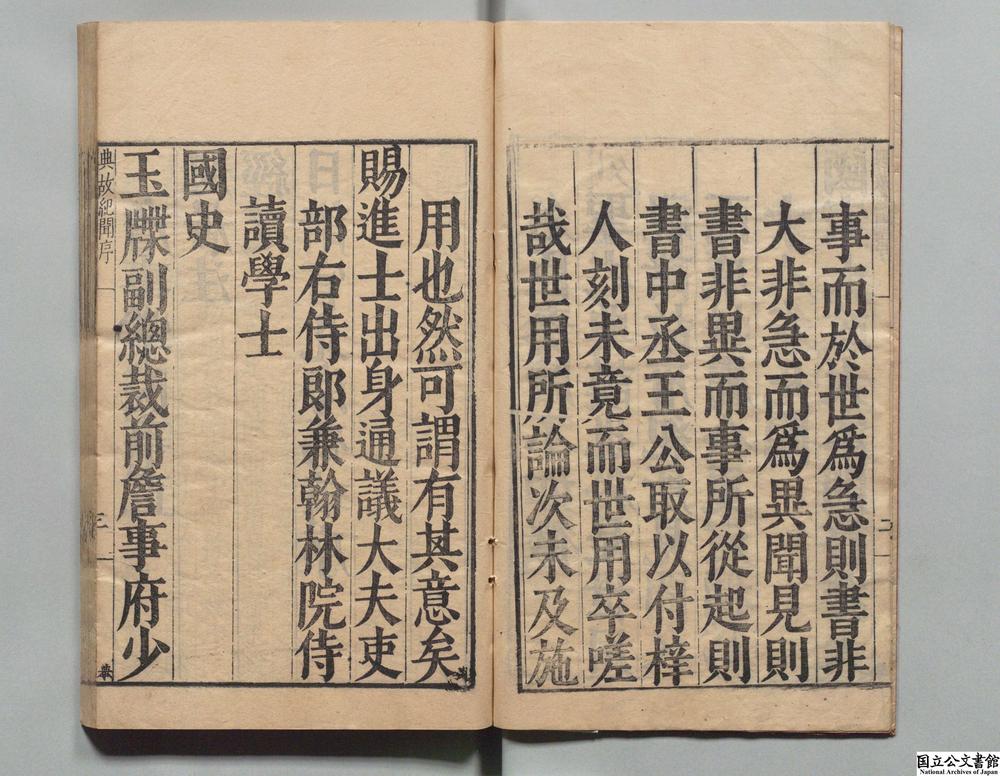 事而於世爲急則書非
大非急而爲異聞見則
書非異而事所從起則
書中丞王公取以付梓
人刻未竟而世用卒嗟
哉世用所論次未及施
用也然可謂有其意矣
賜進士出身通議大夫吏
部右侍郎兼翰林院侍
讀學士
國史
玉牒副總裁前詹事府少
典故紀聞序
三
国立公文書館
National Archives of Japan